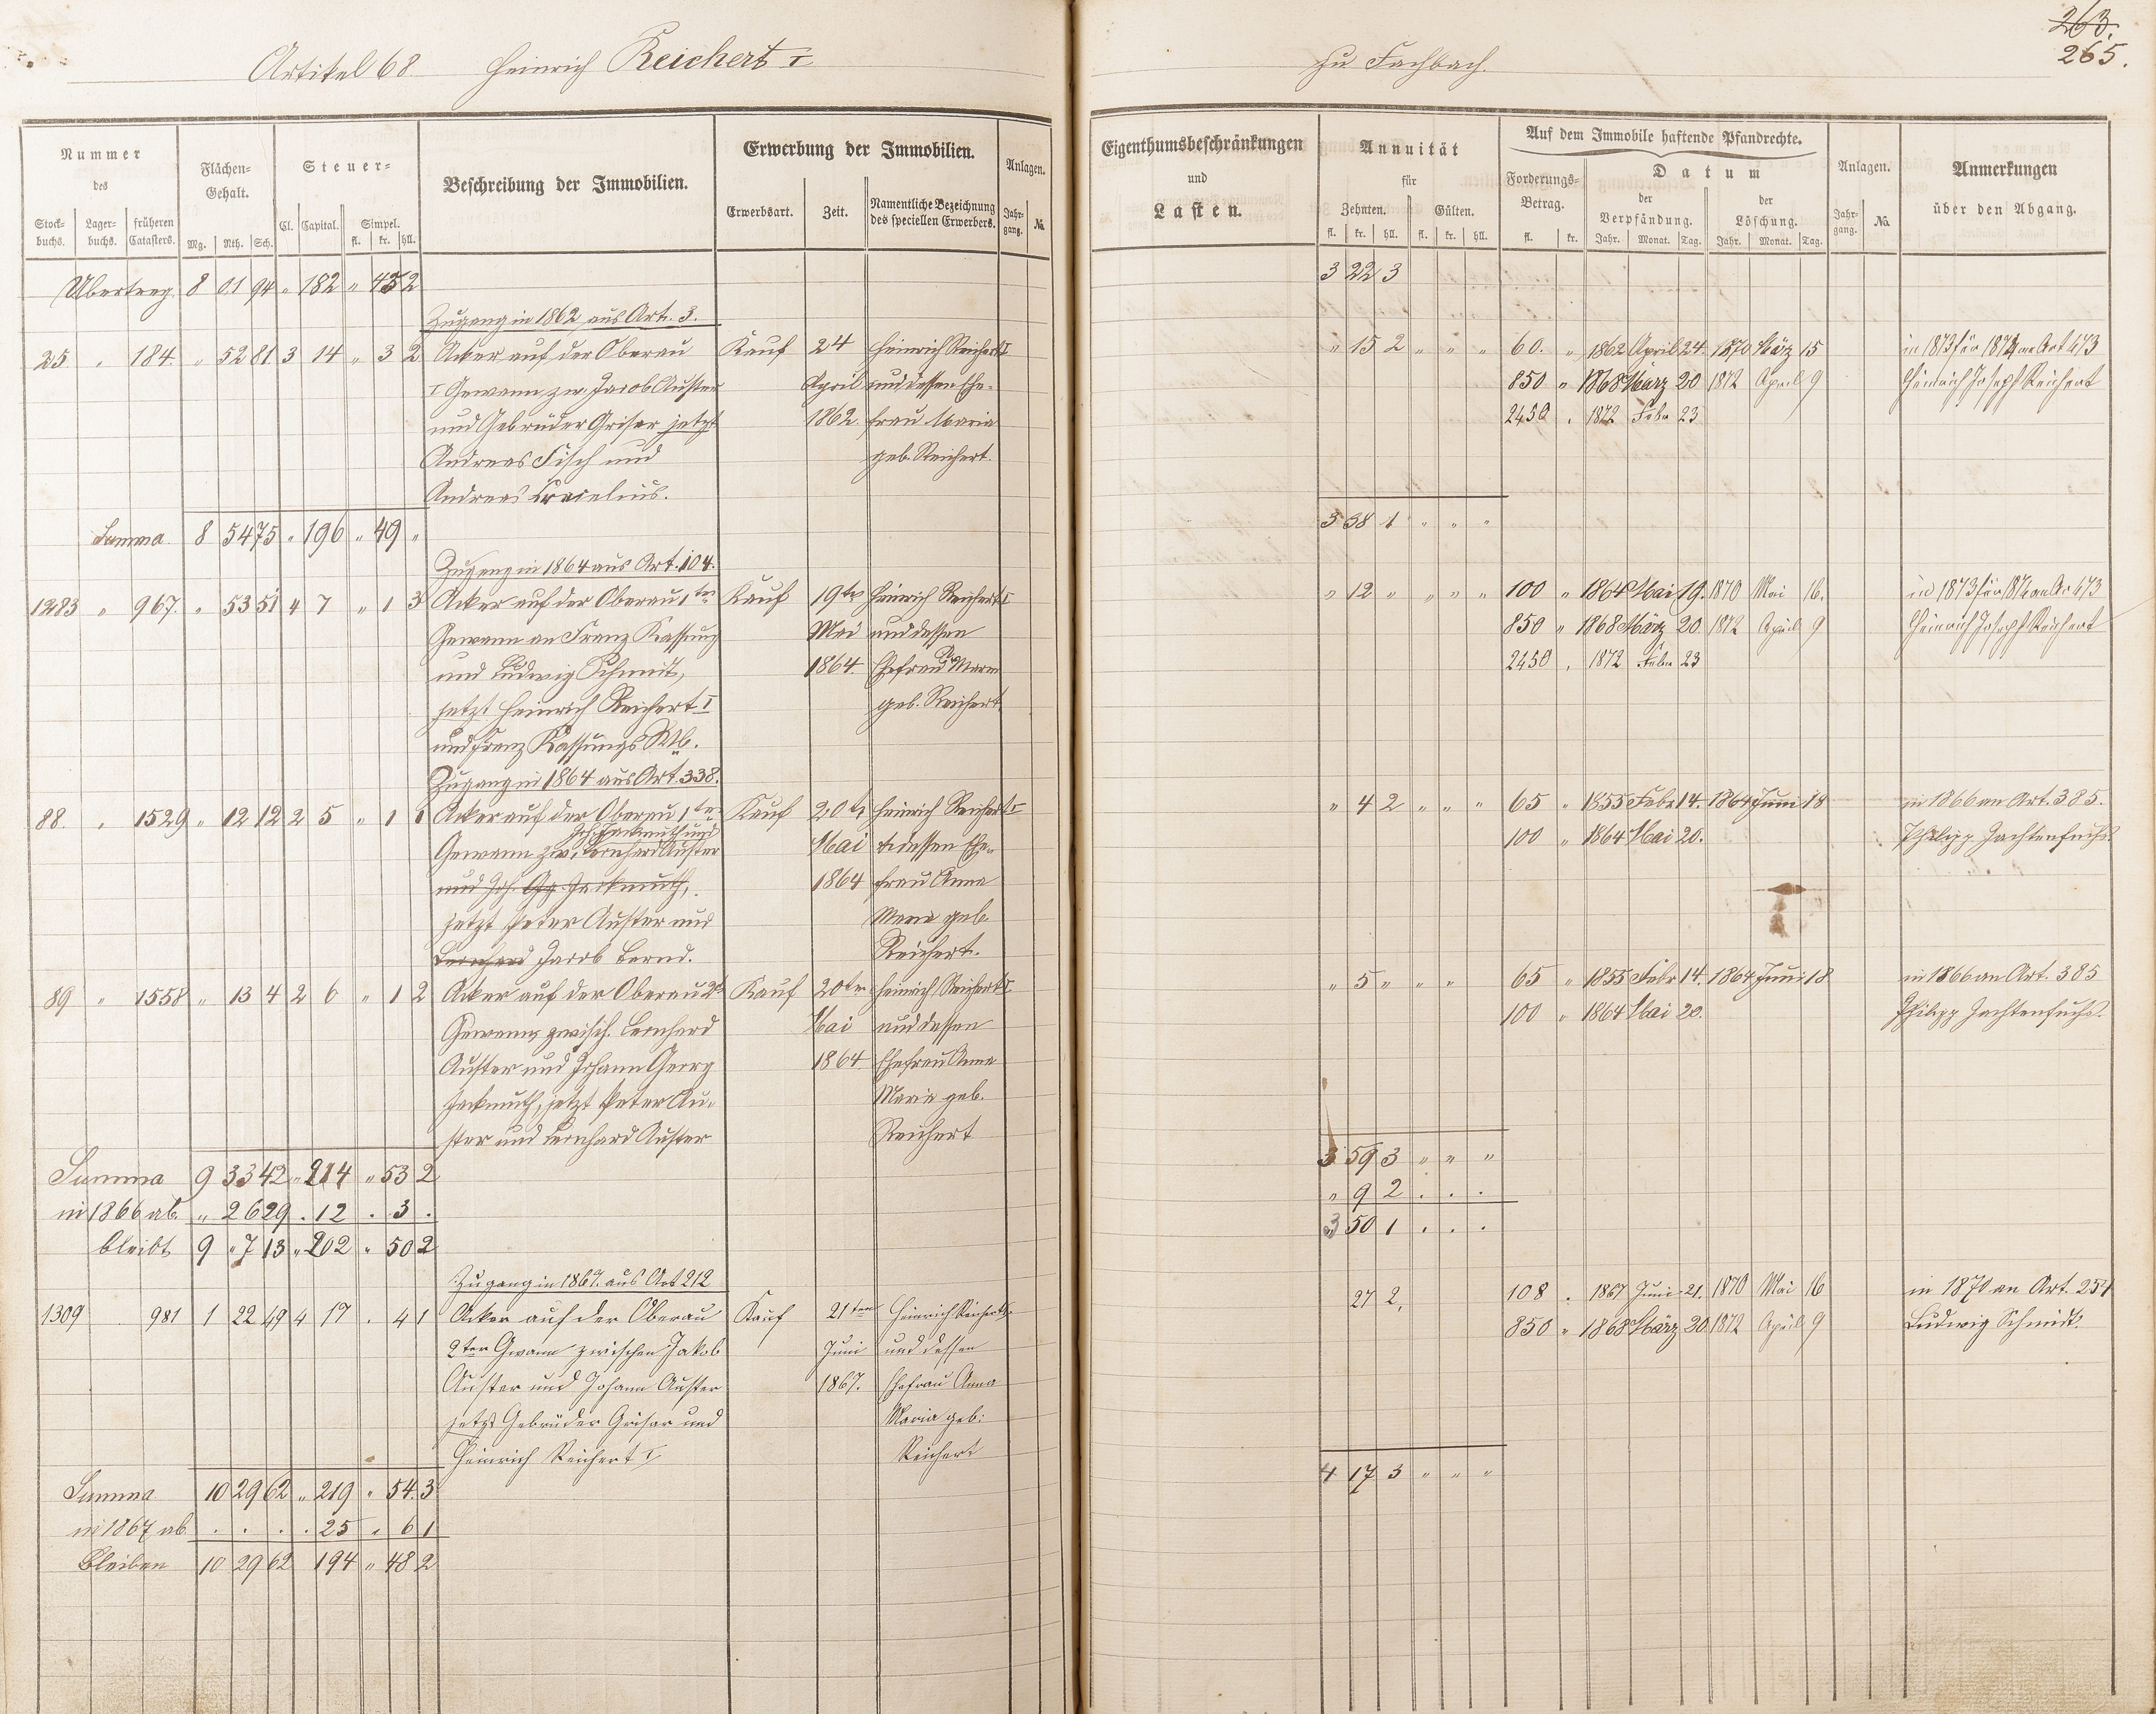 263.
265.
Artikel 68 Heinrich Reichert I
zu Fachbach.
Nummer des
Stock-buchs. Lager-buchs. früheren Catasters.
Flächen-Gehalt.
Mg. Rth. Sch.
Steuer-
Cl. Capital. Simpel.
fl. kr. hll.
Beschreibung der Immobilien.
Erwerbung der Immobilien.
Erwerbsart. Zeit. Namentliche Bezeichnung des speciellen Erwerbers.
Anlagen.
Jahr-gang. No.
Eigenthumsbeschränkungen
und
Lasten.
Annuität
für
Zehnten. Gülten.
fl. kr. hll. fl. kr. hll.
Auf dem Immobile haftende Pfandrechte.
Forderungs-Betrag.
fl. kr.
Datum
der Verpfändung. der Löschung.
Jahr. Monat. Tag. Jahr. Monat. Tag.
Anlagen.
Jahr-gang. No.
Anmerkungen
über den Abgang.
Übertrag 8 01 94 " 182 " 45 2 3 22 3
Zugang in 1862 aus Art. 3.
25 " 184. " 52 81 3 14 " 3 2 Acker auf der Oberau Kauf 24 Heinrich Reichert I " 15 2 " " " 60. " 1862 April 24. 1870 März 15 in 1873 für 1874 an Art 473
I Gewann zw. Jacob Auster April und dessen Ehe- 850 " 1868 März 20 1872 April 9 Heinrich Joseph Reichert
und Gebrüder Griser jetzt 1862 frau Maria 2450 . 1872 Febr 23
Andreas Fisch und geb. Reichert.
Andreas
Summa 8 54 75 " 196 " 49 " 3 38 1 " " "
Zugang in 1864 aus Art. 104.
1283 " 967. " 53 51 4 7 " 1 3 Acker auf der Oberau 1te Kauf 19te Heinrich Reichert I " 12 " " " " 100 " 1864 Mai 19. 1870 Mai 16. in 1873 für 1874 an Ar 473
Gewann an Franz Kassung Mai und dessen 850 " 1868 März 20. 1872 April 9 Heinrich Joseph Reichert
und Ludwig Schmit, 1864. Ehefrau Maria 2450 . 1872 Febr 23
jetzt Heinrich Reichert I geb. Reichert
und Franz Kassungs Wb.
Zugang in 1864 aus Art. 338.
88. " 1529 " 12 12 2 5 " 1 1 Acker auf der Oberau 1te Kauf 20te Heinrich Reichert I " 4 2 " " " 65 " 1855 Febr 14. 1864 Juni 18 in 1866 an Art. 385.
Joh. Jackmuth und
Gewann zw. Bernhard Auster Mai u. dessen Ehe- 100 " 1864 Mai 20. Philipp Zachtenfuchs.
und Joh. Gg. Jackmuth, 1864 frau Anna
jetzt Peter Auster und Maria geb.
Bernhard Jacob Bernd. Reichert.
89 " 1558 " 13 4 2 6 " 1 2 Acker auf der Oberau 2te Kauf 20ten Heinrich Reichert I " 5 " " " 65 " 1855 Febr 14. 1864 Juni 18 in 1866 an Art. 385
Gewann zwisch. Bernhard Mai und dessen 100 " 1864 Mai 20. Philipp Zachtenfuchs.
Auster und Johann Georg 1864 Ehefrau Anna
Jackmuth, jetzt Peter Au- Maria geb.
ster und Bernhard Auster Reichert
Summa 9 33 42 " 214 " 53 2 3 59 3 " " "
in 1866 ab. " 26 29 . 12 . 3 . " 9 2 . . .
bleibt 9 " 7 13 " 202 " 50 2 3 50 1 . . .
Zugang in 1867. aus Art 212
1309 981 1 22 49 4 17 . 4 1 Acker auf der Oberau Kauf 21ten Heinrich Reichert I. 27 2. 108 . 1867 Juni 21. 1870 Mai 16 in 1870 an Art. 251
2ter Gwann zwischen Jakob Juni und dessen 850 " 1868 März 20 1872 April 9 Ludwig Schmidt.
Auster und Johann Auster 1867. Ehefrau Anna
jetzt Gebrüder Grisar und Maria geb:
Heinrich Reichert I. Reichert
Summa 10 29 62 " 219 " 54. 3 4 17 3 " " "
in 1867 ab. . . . . 25 . 6 1
Bleiben 10 29 62 194 " 48 2